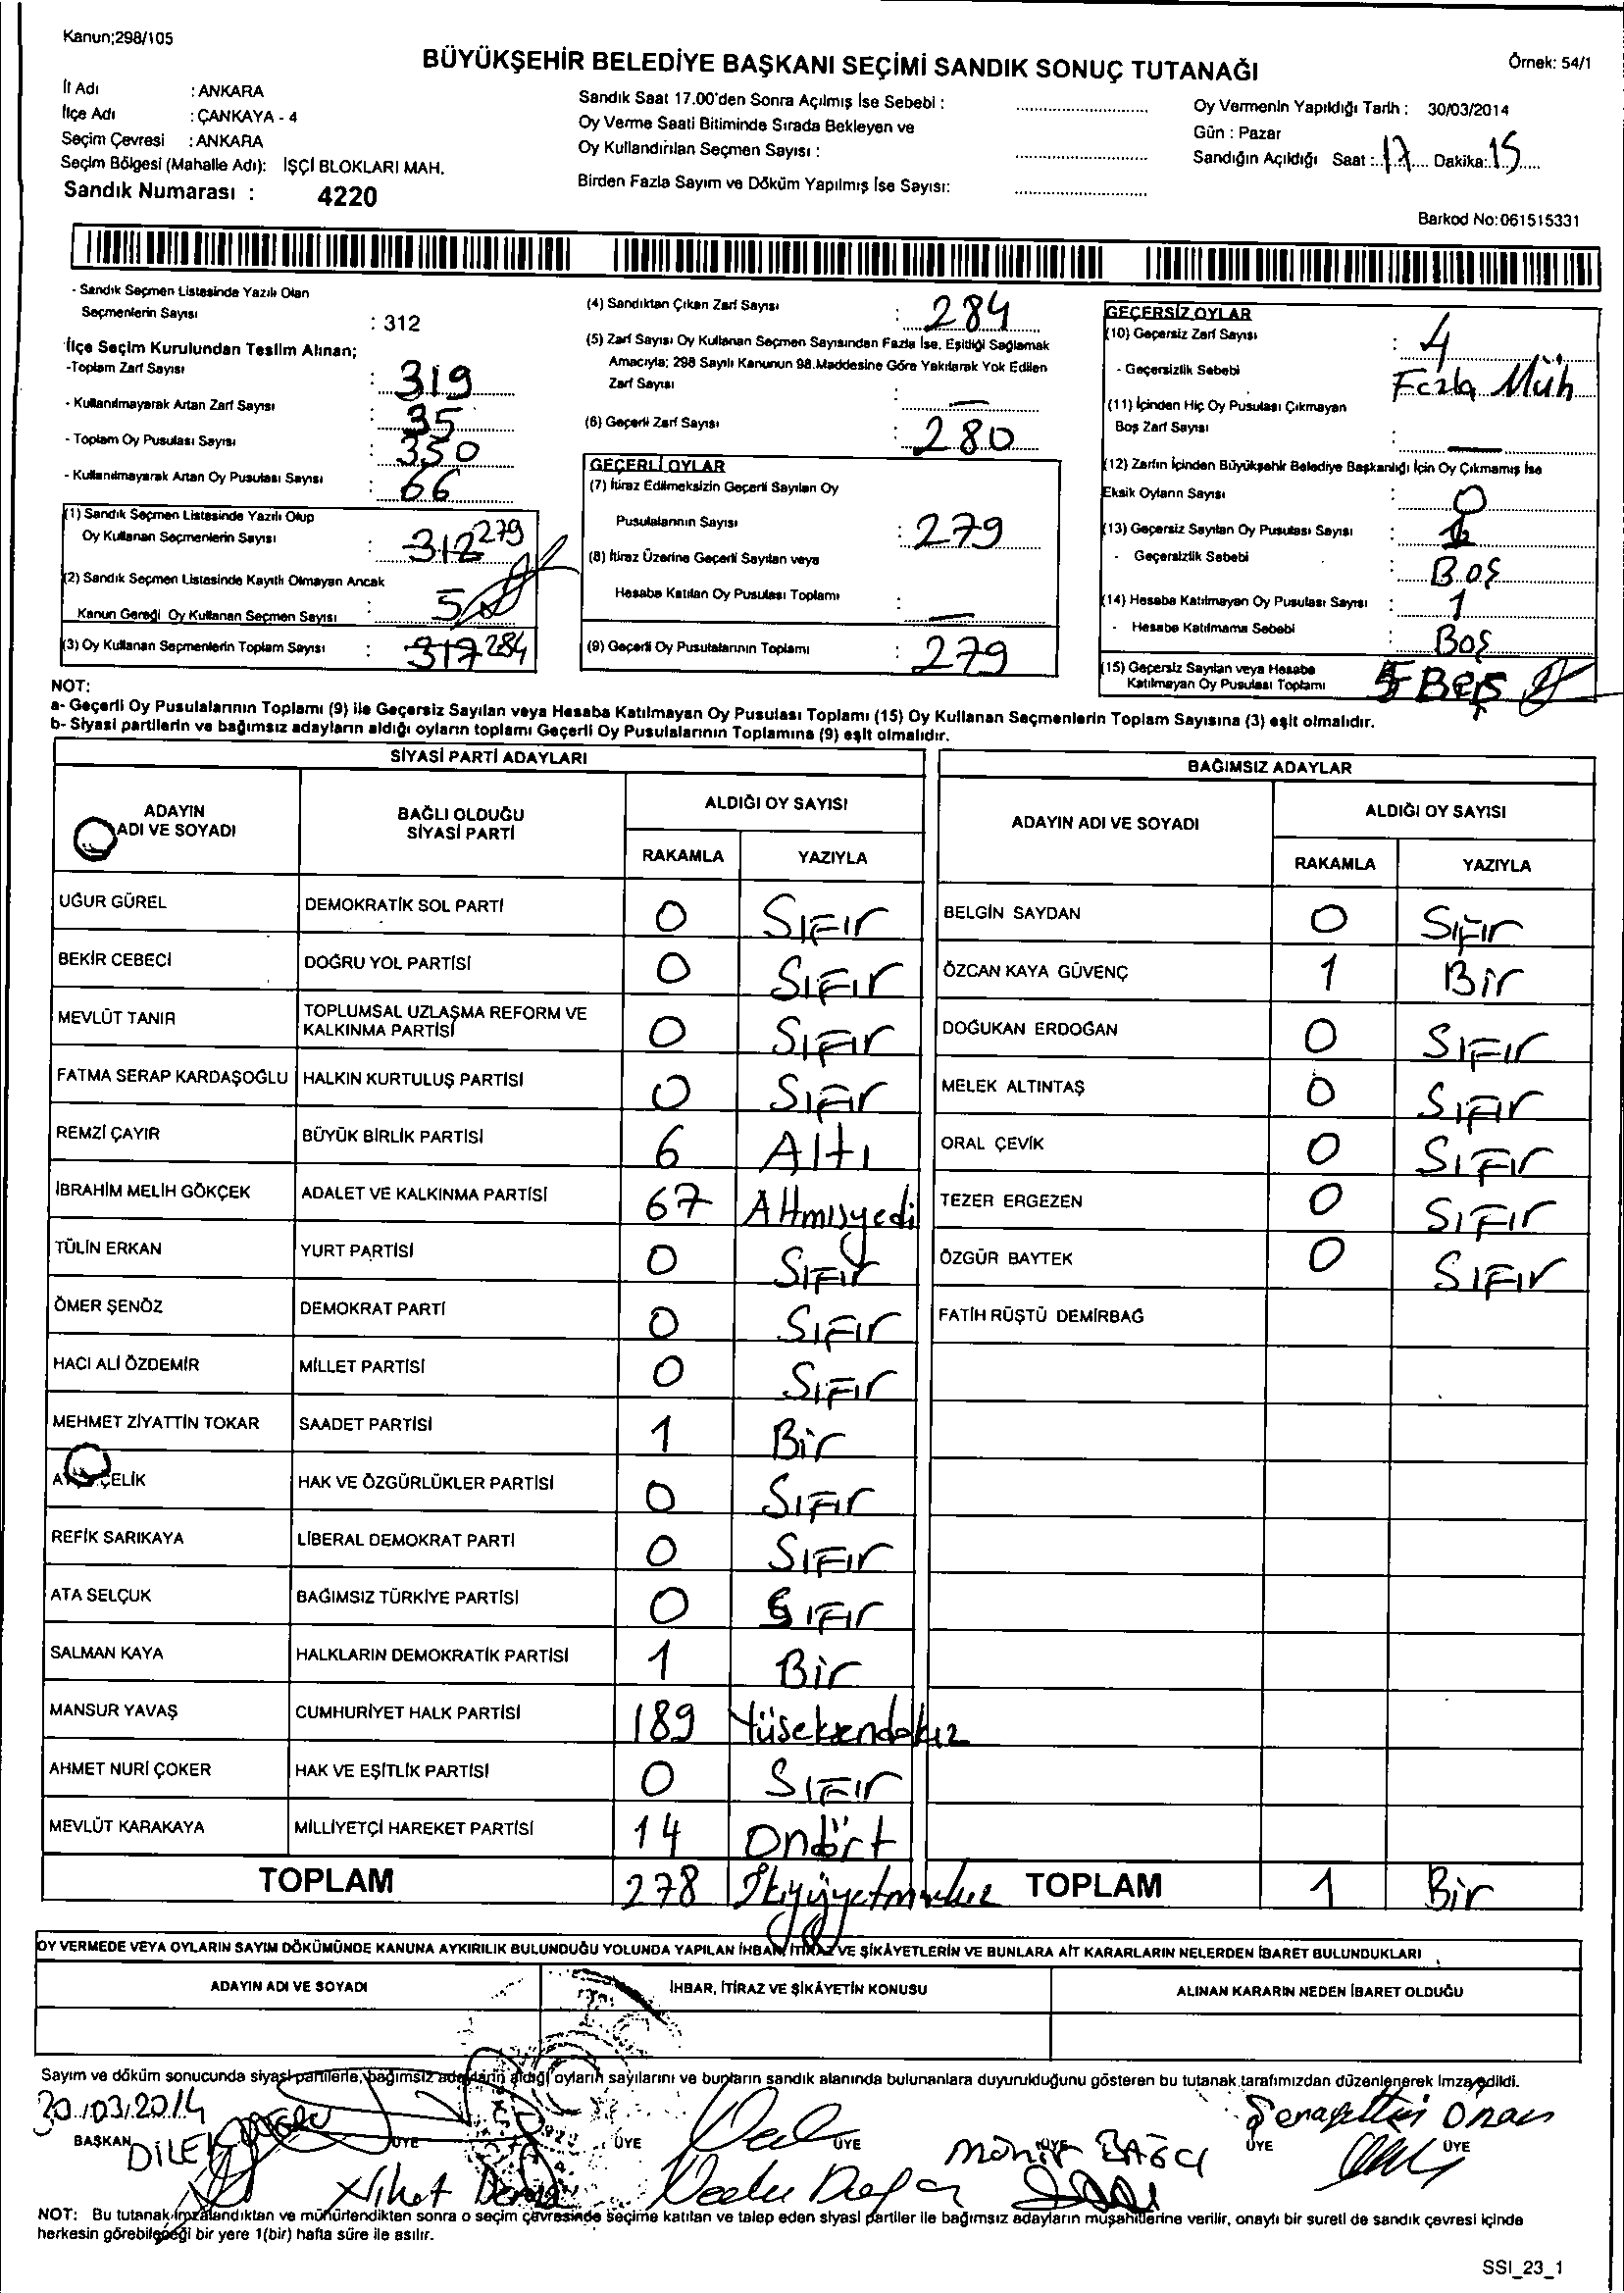 Kanun;298/105
BÜYÜKŞEHİR BELEDİYE BAŞKANI SEÇİMİ SANDIK SONUÇ TUTANAĞI
Örnek: 54/1
İl Adı : ANKARA
İlçe Adı : ÇANKAYA - 4
Seçim Çevresi : ANKARA
Seçim Bölgesi (Mahalle Adı): İŞÇİ BLOKLARI MAH.
Sandık Numarası : 4220
Sandık Saat 17.00'den Sonra Açılmış İse Sebebi :
Oy Verme Saati Bitiminde Sırada Bekleyen ve
Oy Kullandırılan Seçmen Sayısı :
Birden Fazla Sayım ve Döküm Yapılmış İse Sayısı:
Oy Vermenin Yapıldığı Tarih : 30/03/2014
Gün : Pazar
Sandığın Açıldığı Saat : 17 Dakika: 15
Barkod No:061515331
- Sandık Seçmen Listesinde Yazılı Olan
Seçmenlerin Sayısı : 312
İlçe Seçim Kurulundan Teslim Alınan;
-Toplam Zarf Sayısı : 319
- Kullanılmayarak Artan Zarf Sayısı : 35
- Toplam Oy Pusulası Sayısı : 350
- Kullanılmayarak Artan Oy Pusulası Sayısı : 66
(1) Sandık Seçmen Listesinde Yazılı Olup
Oy Kullanan Seçmenlerin Sayısı : 312 279
(2) Sandık Seçmen Listesinde Kayıtlı Olmayan Ancak
Kanun Gereği Oy Kullanan Seçmen Sayısı : 5
(3) Oy Kullanan Seçmenlerin Toplam Sayısı : 317 284
(4) Sandıktan Çıkan Zarf Sayısı : 284
(5) Zarf Sayısı Oy Kullanan Seçmen Sayısından Fazla İse, Eşitliği Sağlamak
Amacıyla; 298 Sayılı Kanunun 98.Maddesine Göre Yakılarak Yok Edilen
Zarf Sayısı : —
(6) Geçerli Zarf Sayısı : 280
GEÇERLİ OYLAR
(7) İtiraz Edilmeksizin Geçerli Sayılan Oy
Pusulalarının Sayısı : 279
(8) İtiraz Üzerine Geçerli Sayılan veya
Hesaba Katılan Oy Pusulası Toplamı : —
(9) Geçerli Oy Pusulalarının Toplamı : 279
GEÇERSİZ OYLAR
(10) Geçersiz Zarf Sayısı : 4
- Geçersizlik Sebebi Fazla Müh
(11) İçinden Hiç Oy Pusulası Çıkmayan
Boş Zarf Sayısı : —
(12) Zarfın İçinden Büyükşehir Belediye Başkanlığı İçin Oy Çıkmamış İse
Eksik Oyların Sayısı : 0
(13) Geçersiz Sayılan Oy Pusulası Sayısı :
- Geçersizlik Sebebi : Boş
(14) Hesaba Katılmayan Oy Pusulası Sayısı : 1
- Hesaba Katılmama Sebebi : Boş
(15) Geçersiz Sayılan veya Hesaba
Katılmayan Oy Pusulası Toplamı 5 Beş
NOT:
a- Geçerli Oy Pusulalarının Toplamı (9) ile Geçersiz Sayılan veya Hesaba Katılmayan Oy Pusulası Toplamı (15) Oy Kullanan Seçmenlerin Toplam Sayısına (3) eşit olmalıdır.
b- Siyasi partilerin ve bağımsız adayların aldığı oyların toplamı Geçerli Oy Pusulalarının Toplamına (9) eşit olmalıdır.
SİYASİ PARTİ ADAYLARI
ADAYIN ADI VE SOYADI BAĞLI OLDUĞU SİYASİ PARTİ ALDIĞI OY SAYISI
RAKAMLA YAZIYLA
UĞUR GÜREL DEMOKRATİK SOL PARTİ 0 Sıfır
BEKİR CEBECİ DOĞRU YOL PARTİSİ 0 Sıfır
MEVLÜT TANIR TOPLUMSAL UZLAŞMA REFORM VE KALKINMA PARTİSİ 0 Sıfır
FATMA SERAP KARDAŞOĞLU HALKIN KURTULUŞ PARTİSİ 0 Sıfır
REMZİ ÇAYIR BÜYÜK BİRLİK PARTİSİ 6 Altı
İBRAHİM MELİH GÖKÇEK ADALET VE KALKINMA PARTİSİ 67 Altmışyedi
TÜLİN ERKAN YURT PARTİSİ 0 Sıfır
ÖMER ŞENÖZ DEMOKRAT PARTİ 0 Sıfır
HACI ALİ ÖZDEMİR MİLLET PARTİSİ 0 Sıfır
MEHMET ZİYATTİN TOKAR SAADET PARTİSİ 1 Bir
ÇELİK HAK VE ÖZGÜRLÜKLER PARTİSİ 0 Sıfır
REFİK SARIKAYA LİBERAL DEMOKRAT PARTİ 0 Sıfır
ATA SELÇUK BAĞIMSIZ TÜRKİYE PARTİSİ 0 Sıfır
SALMAN KAYA HALKLARIN DEMOKRATİK PARTİSİ 1 Bir
MANSUR YAVAŞ CUMHURİYET HALK PARTİSİ 189
AHMET NURİ ÇOKER HAK VE EŞİTLİK PARTİSİ 0 Sıfır
MEVLÜT KARAKAYA MİLLİYETÇİ HAREKET PARTİSİ 14 Ondört
TOPLAM 278
BAĞIMSIZ ADAYLAR
ADAYIN ADI VE SOYADI ALDIĞI OY SAYISI
RAKAMLA YAZIYLA
BELGİN SAYDAN 0 Sıfır
ÖZCAN KAYA GÜVENÇ 1 Bir
DOĞUKAN ERDOĞAN 0 Sıfır
MELEK ALTINTAŞ 0 Sıfır
ORAL ÇEVİK 0 Sıfır
TEZER ERGEZEN 0 Sıfır
ÖZGÜR BAYTEK 0 Sıfır
FATİH RÜŞTÜ DEMİRBAĞ
TOPLAM 1 Bir
OY VERMEDE VEYA OYLARIN SAYIM DÖKÜMÜNDE KANUNA AYKIRILIK BULUNDUĞU YOLUNDA YAPILAN İHBAR, İTİRAZ VE ŞİKÂYETLERİN VE BUNLARA AİT KARARLARIN NELERDEN İBARET BULUNDUKLARI
ADAYIN ADI VE SOYADI İHBAR, İTİRAZ VE ŞİKÂYETİN KONUSU ALINAN KARARIN NEDEN İBARET OLDUĞU
Sayım ve döküm sonucunda siyasi partilerle, bağımsız adayların aldığı oyların sayılarını ve bunların sandık alanında bulunanlara duyurulduğunu gösteren bu tutanak tarafımızdan düzenlenerek imza edildi.
30/03/2014
Onan
BAŞKAN ÜYE ÜYE ÜYE ÜYE ÜYE ÜYE
DİLEK Nihat Vedat Doğan Münir BAĞCI
NOT: Bu tutanak imzalandıktan ve mühürlendikten sonra o seçim çevresinde seçime katılan ve talep eden siyasi partiler ile bağımsız adayların müşahitlerine verilir, onaylı bir sureti de sandık çevresi içinde
herkesin görebileceği bir yere 1(bir) hafta süre ile asılır.
SSI_23_1